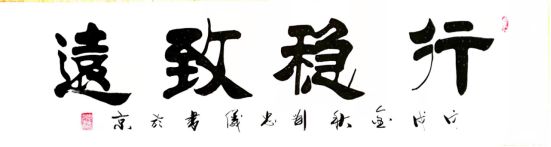 行稳致遠
戊戌金秋劉忠儀書於京